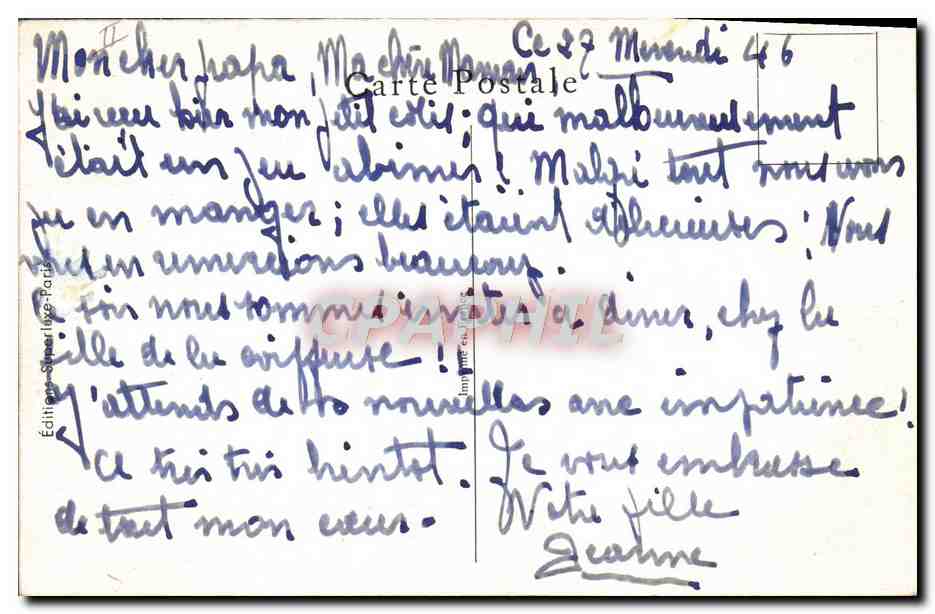 II
Ce 27 Mercredi 46
Mon cher papa, Ma chère Maman
Carte Postale
J'ai reçu hier mon petit colis; qui malheureusement
était un peu abimer! Malgré tout nous avons
pu en manger; elles étaient délicieuses! Nous
vous en remercions beaucoup
Ce soir nous sommes invités à diner, chez la
fille de la coiffeuse!
J'attends de vos nouvelles avec impatience!
A très très bientot. Je vous embrasse
de tout mon cœur.
Votre fille
Jeanne
Éditions Superluxe-Paris
Imprimé en France
CPAPHIL